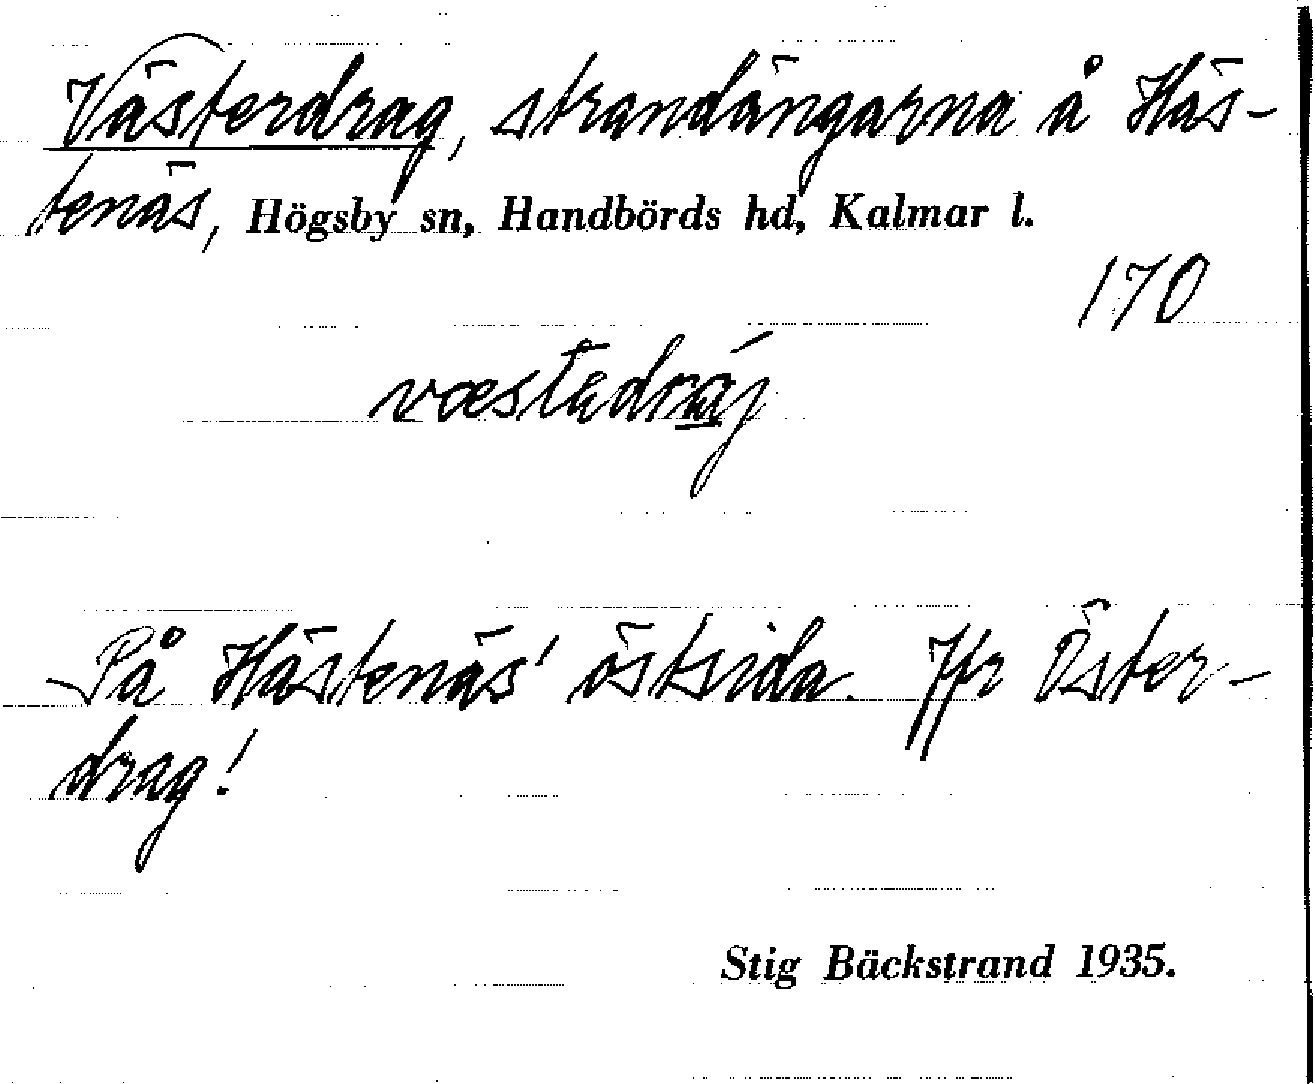 Västerdrag, strandängarna å Häs-
tenäs, Högsby sn, Handbörds hd, Kalmar l.
170
På Hästenäs' östsida. Jfr Öster-
drag!
Stig Bäckstrand 1935.